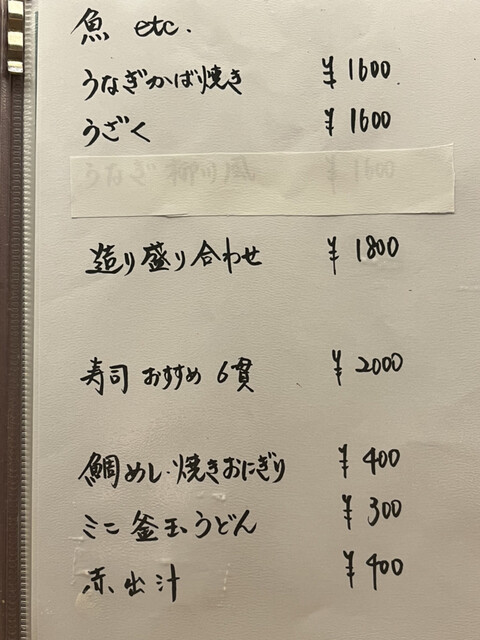 魚 etc.
うなぎかば焼き ¥1600
うざく ¥1600
うなぎ 柳川風 ¥1600
造り盛り合わせ ¥1800
寿司 おすすめ 6貫 ¥2000
鯛めし・焼きおにぎり ¥400
ミニ釜玉うどん ¥300
赤出汁 ¥400